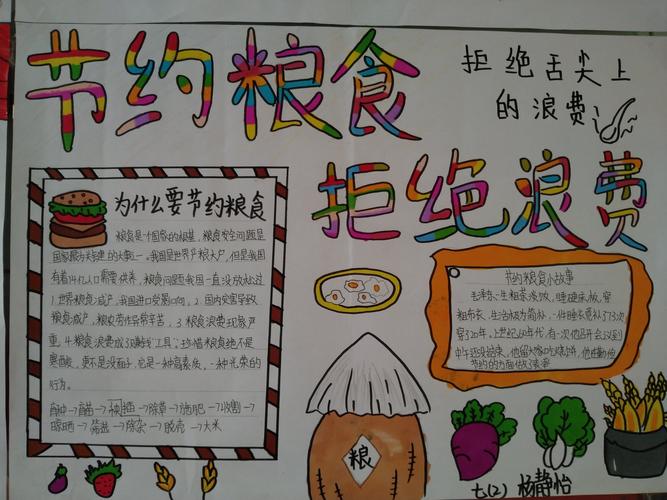 节约粮食
拒绝舌尖上
的浪费
拒绝浪费
为什么要节约粮食
粮食是一个国家的根基，粮食安全问题是
国家最为关键的大事之一。我国是世界产粮大户，但是我国
有着14亿人口需要供养，粮食问题我国一直没放松过
1世界粮食减产，我国进口受影响，2国内灾害导致
粮食减产，粮农劳作异常辛苦，3粮食浪费现象严
重。4粮食浪费成工具；珍惜粮食绝不是
寒酸，更不是没面子，它是一种高素质，一种光荣的
行为。
育种→育苗→插秧→除草→施肥→收割→
晾晒→筛选→除杂→脱壳→大米
节约粮食小故事
毛泽东、生粗茶淡饭，睡硬床板，穿
粗布衣，生活极为简朴，一件睡衣补了73次
穿了20年，上世纪60年代，有一次他召开会议到
中午还没结束，他留大家吃烧饼，他还勤俭
节约的方面做了表率
粮
七(2) 杨静怡